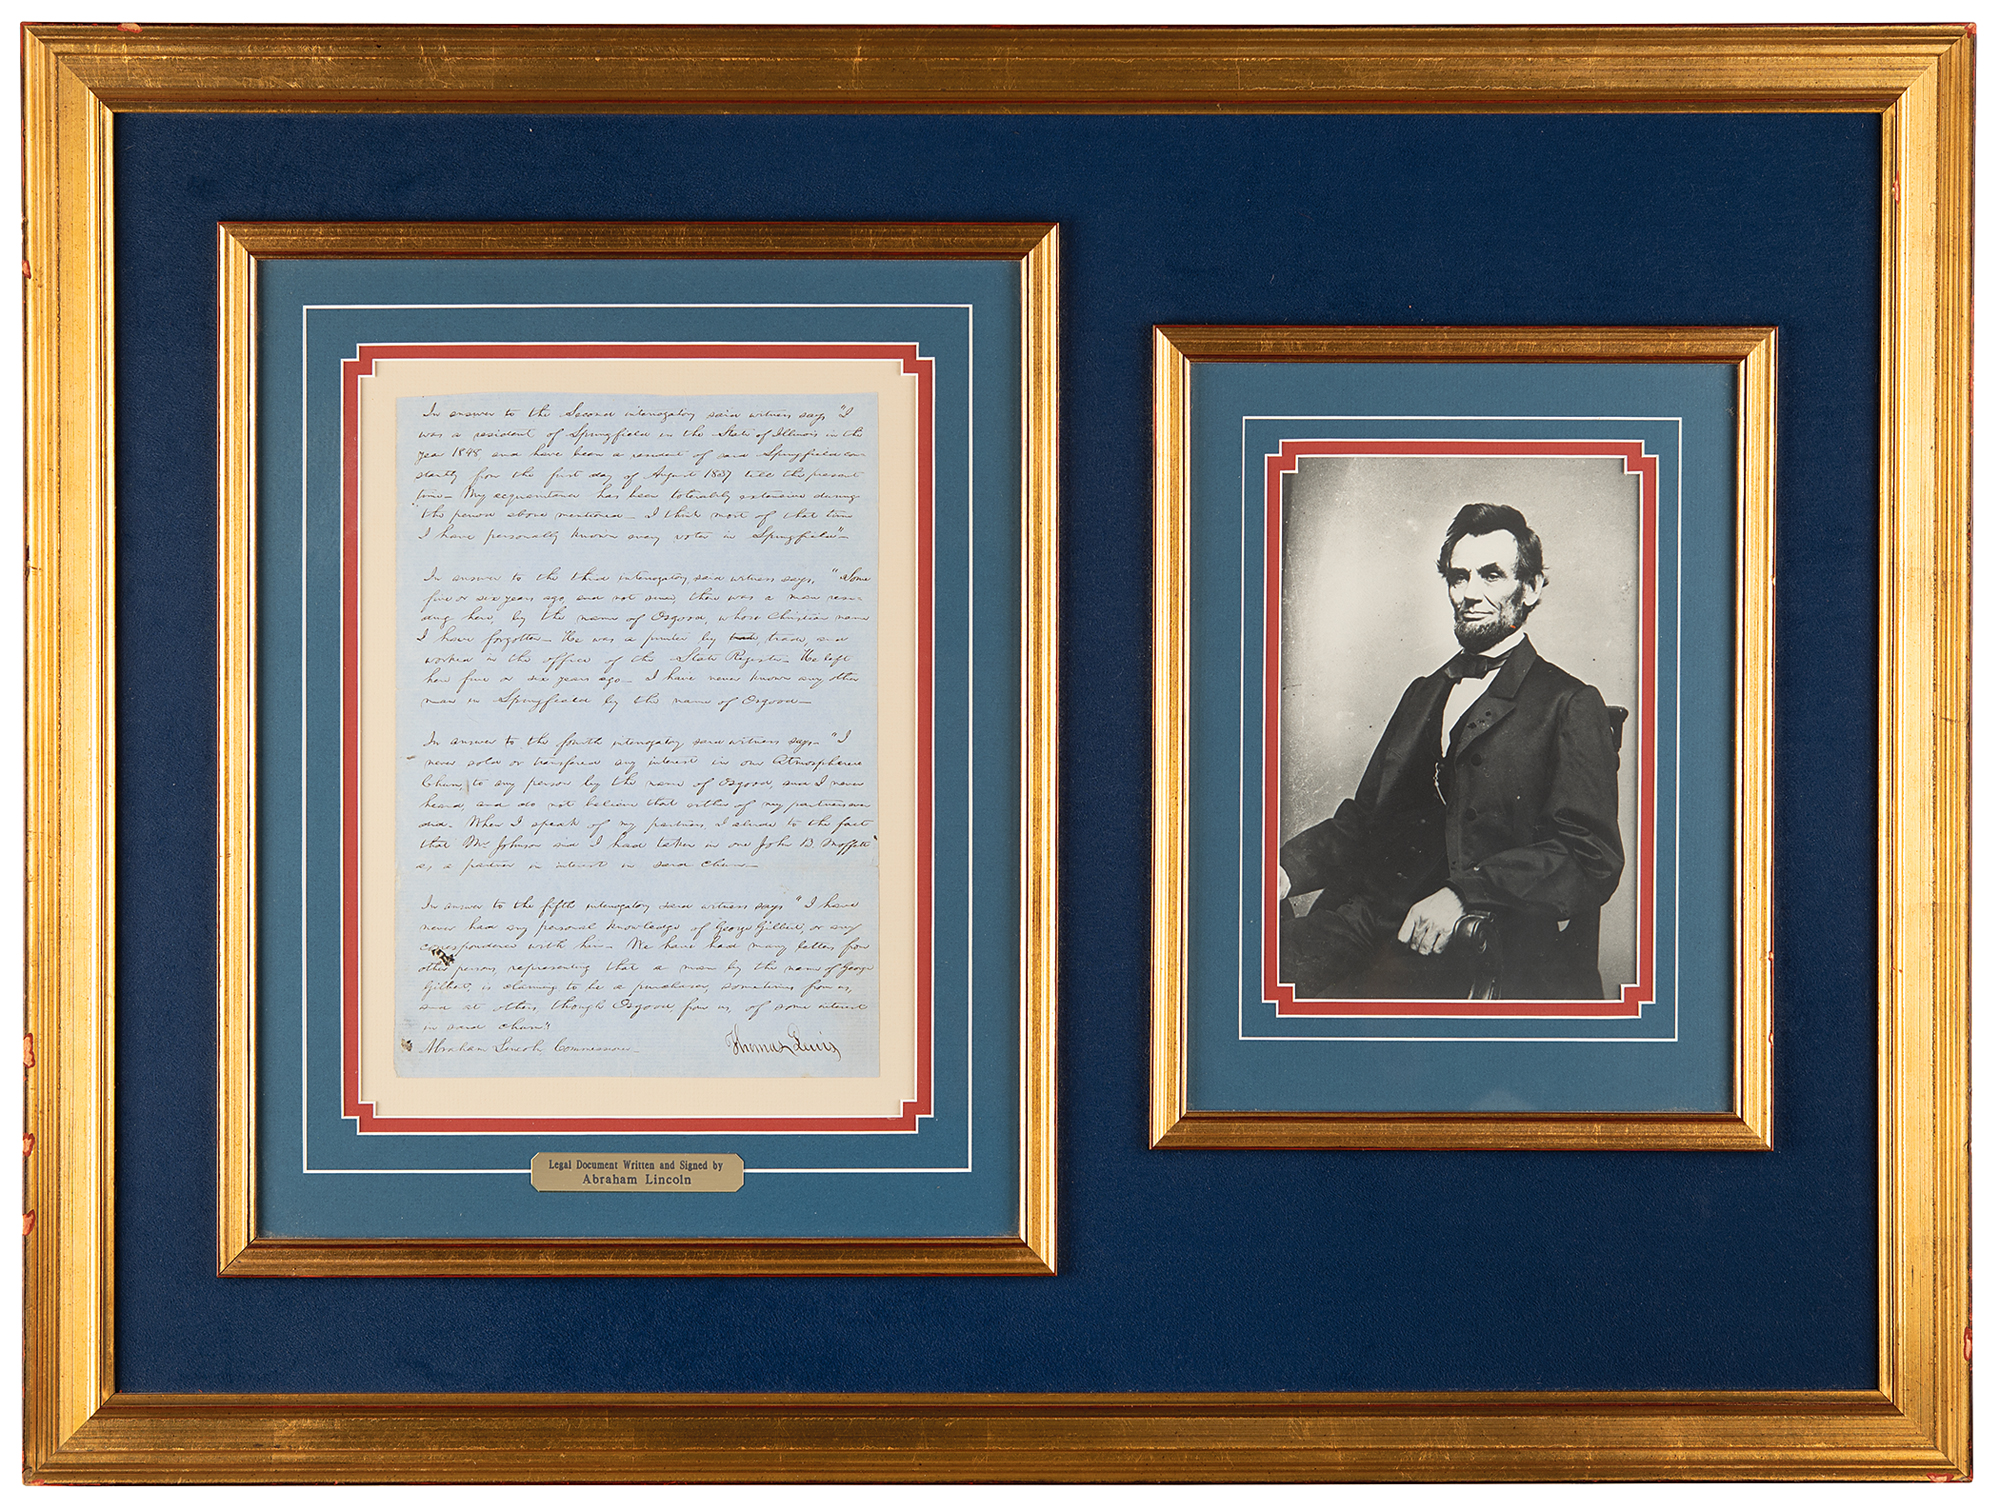 In answer to the Second interrogatory said witness says, "I
was a resident of Springfield in the State of Illinois in the
year 1848 and have been a resident of said Springfield con-
stantly from the first day of August 1837 till the present
time— My acquaintance has been tolerably extensive during
the period above mentioned— I think most of that time
I have personally known every voter in Springfield"—
In answer to the third interrogatory, said witness says, "Some
five or six years ago, and not since, there was a man resi-
ding here, by the name of Osgood, whose Christian name
I have forgotten— He was a printer by trade, and
worked in the office of the State Register— He left
here five or six years ago— I have never known any other
man in Springfield by the name of Osgood—
In answer to the fourth interrogatory said witness says— "I
never sold or transfered any interest in our Atmospheric
Churn, to any person by the name of Osgood, and I never
heard, and do not believe that either of my partners ever
did— When I speak of my partners, I allude to the fact
that Mr. Johnson and I had taken in one John B. Moffett
as a partner in interest in said churn—
In answer to the fifth interrogatory said witness says "I have
never had any personal knowledge of George Gilbert, or any
correspondence with him— We have had many letters from
other persons, representing that a man by the name of George
Gilbert, is claiming to be a purchaser, sometimes from us,
and at others, through Osgood from us, of some interest
in said churn"
Abraham Lincoln Commissioner—
Thomas Lewis
Legal Document Written and Signed by
Abraham Lincoln